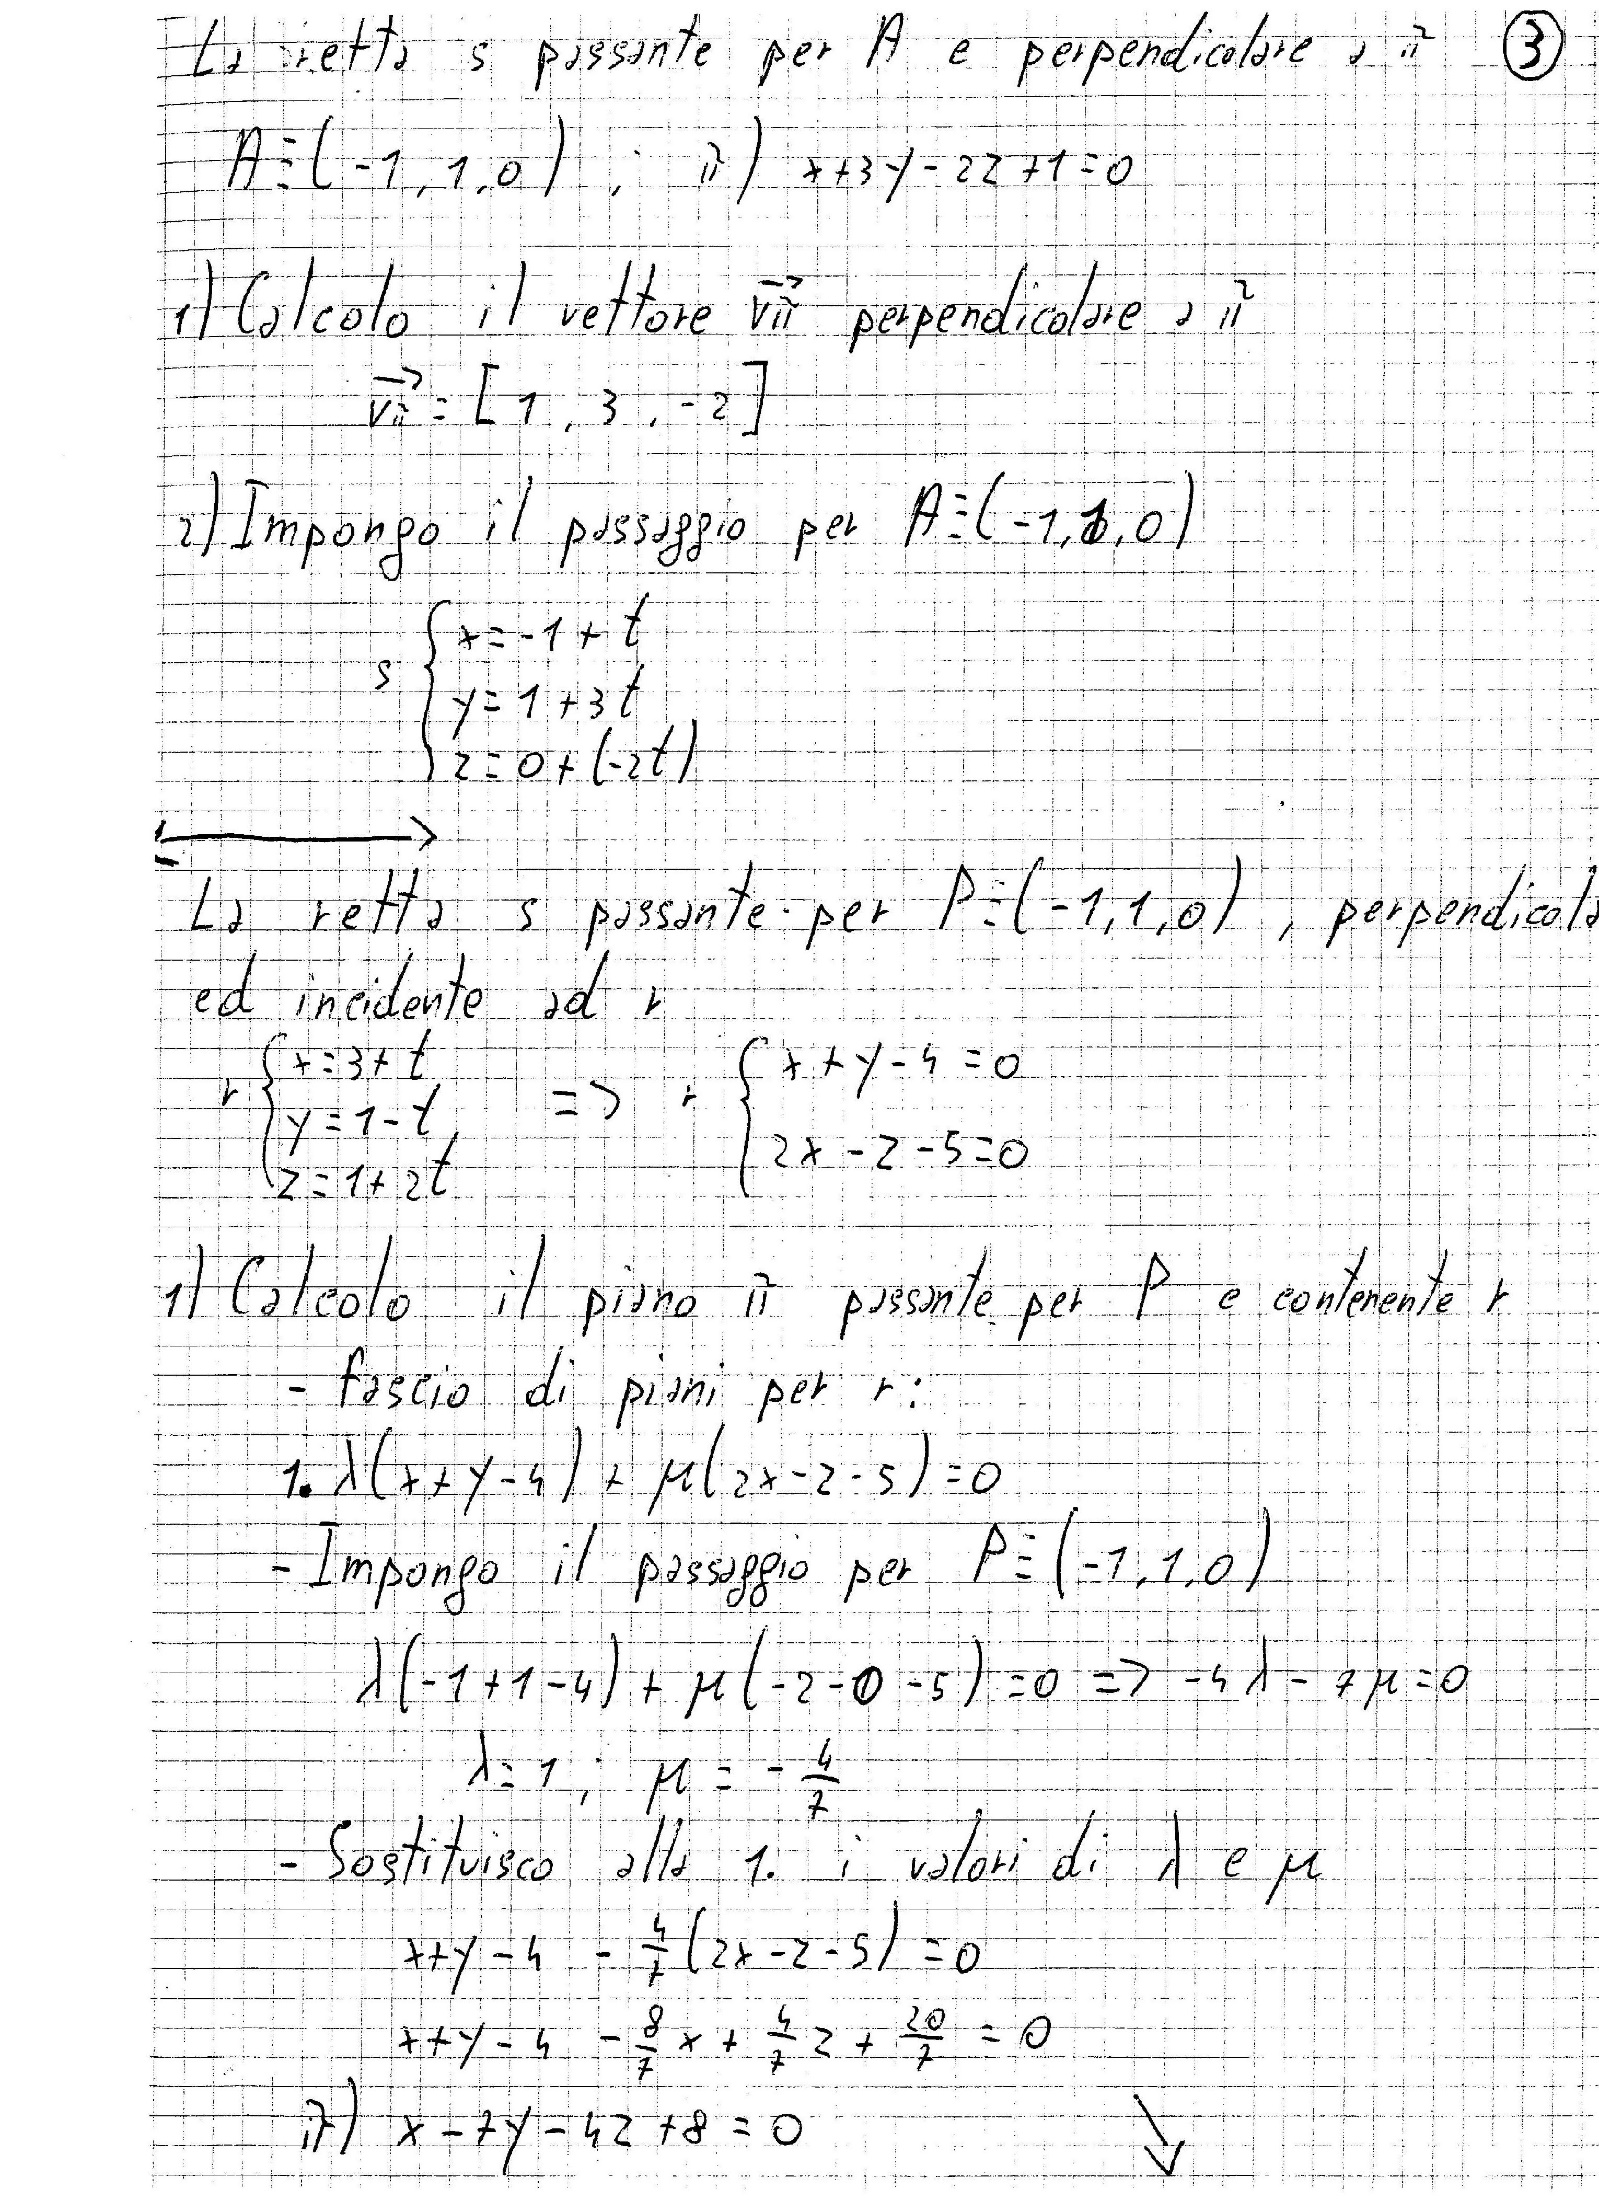 La retta s passante per A e perpendicolare a π ③
A≡(-1,1,0) ; π) x+3y-2z+1=0
1) Calcolo il vettore v⃗π perpendicolare a π
v⃗π=[1,3,-2]
2) Impongo il passaggio per A≡(-1,1,0)
x=-1+t
s { y=1+3t
z=0+(-2t)
La retta s passante per P≡(-1,1,0), perpendicola
ed incidente ad r
x=3+t x+y-4=0
r { y=1-t => r {
z=1+2t 2x-z-5=0
1) Calcolo il piano π passante per P e contenente r
- fascio di piani per r:
1. λ(x+y-4) + μ(2x-z-5)=0
- Impongo il passaggio per P≡(-1,1,0)
λ(-1+1-4)+μ(-2-0-5)=0 => -4λ-7μ=0
λ=1; μ=-4/7
- Sostituisco alla 1. i valori di λ e μ
x+y-4 -4/7(2x-z-5)=0
x+y-4 -8/7x+4/7z+20/7=0
π) x-7y-4z+8=0